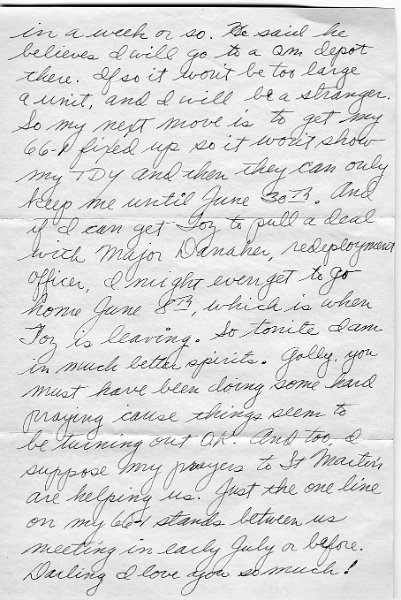 in a week or so. He said he
believes I will go to a Qm depot
there. If so it won't be too large
a unit, and I will be a stranger.
So my next move is to get my
66-1 fixed up so it won't show
my TDY and then they can only
keep me until June 30Th. And
if I can get Foz to pull a deal
with Major Danaher, redeployment
officer, I might even get to go
home June 8Th, which is when
Foz is leaving. So tonite I am
in much better spirits. Golly, you
must have been doing some hard
praying cause things seem to
be turning out O.K. And too, I
suppose my prayers to St Martin
are helping us. Just the one line
on my 66-1 stands between us
meeting in early July or before.
Darling I love you so much!